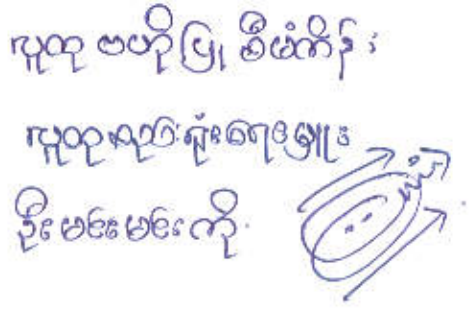 လူထု ဗဟိုပြု စီမံကိန်း
လူထုလုပ်ရုံးရေးမှူး
ဦးမင်းမင်းကို